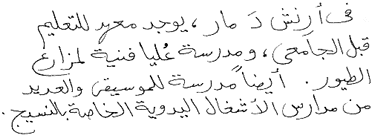 فى أرنش دَ مار ، يوجد معهد للتعليم
قبل الجامعي ، ومدرسة عُليا فنية لمزارع
الطيور . أيضاً مدرسة للموسيقى والعديد
من مدارس الأشغال اليدوية الخاصة بالنسيج .